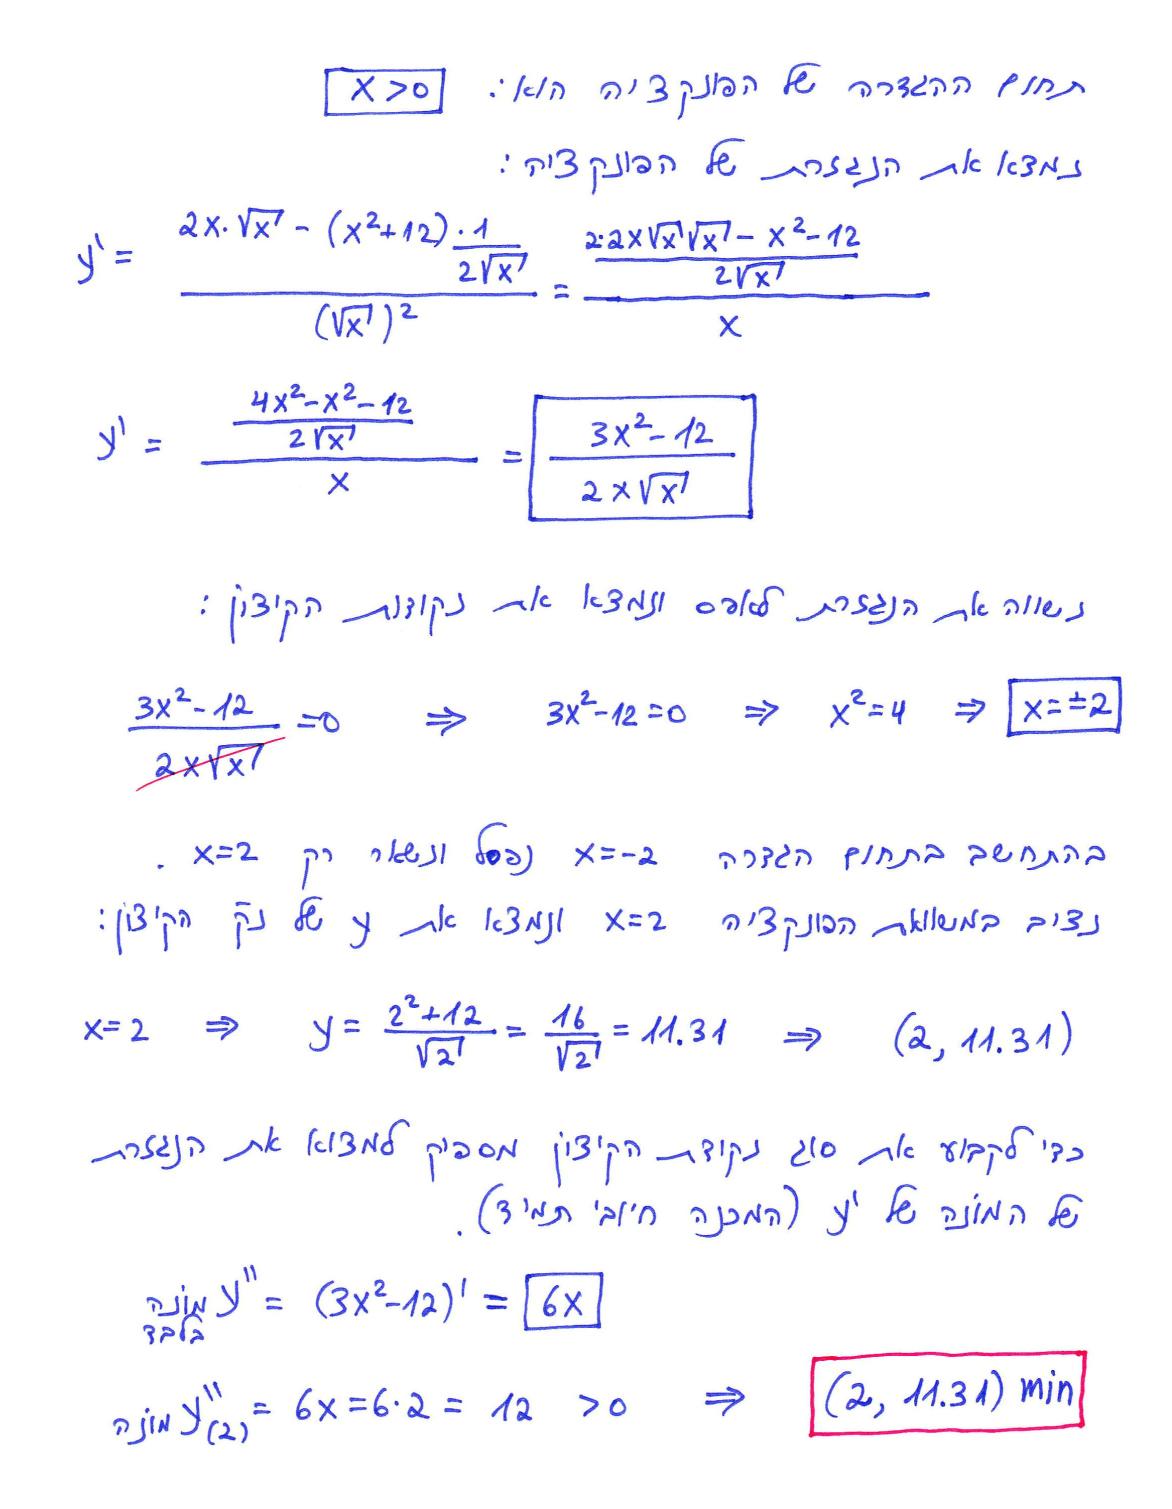 תחום ההגדרה של הפונקציה הוא: x>0
נמצא את הנגזרת של הפונקציה:
y' = (2x·√x - (x²+12)·1/(2√x)) / (√x)² = ((2·2x√x√x - x²-12)/(2√x)) / x
y' = ((4x²-x²-12)/(2√x)) / x = (3x²-12)/(2x√x)
נשווה את הנגזרת לאפס ונמצא את נקודות הקיצון:
(3x²-12)/(2x√x) =0 ⇒ 3x²-12=0 ⇒ x²=4 ⇒ x=±2
בהתחשב בתחום הגדרה x=-2 נפסל ונשאר רק x=2.
נציב במשוואת הפונקציה x=2 ונמצא את y של נק' הקיצון:
x=2 ⇒ y = (2²+12)/√2 = 16/√2 = 11.31 ⇒ (2, 11.31)
כדי לקבוע את סוג נקודת הקיצון מספיק למצוא את הנגזרת
של המונה של y' (המכנה חיובי תמיד).
y'' מונה בלבד = (3x²-12)' = 6x
y''(2) מונה = 6x=6·2 = 12 >0 ⇒ (2, 11.31) min